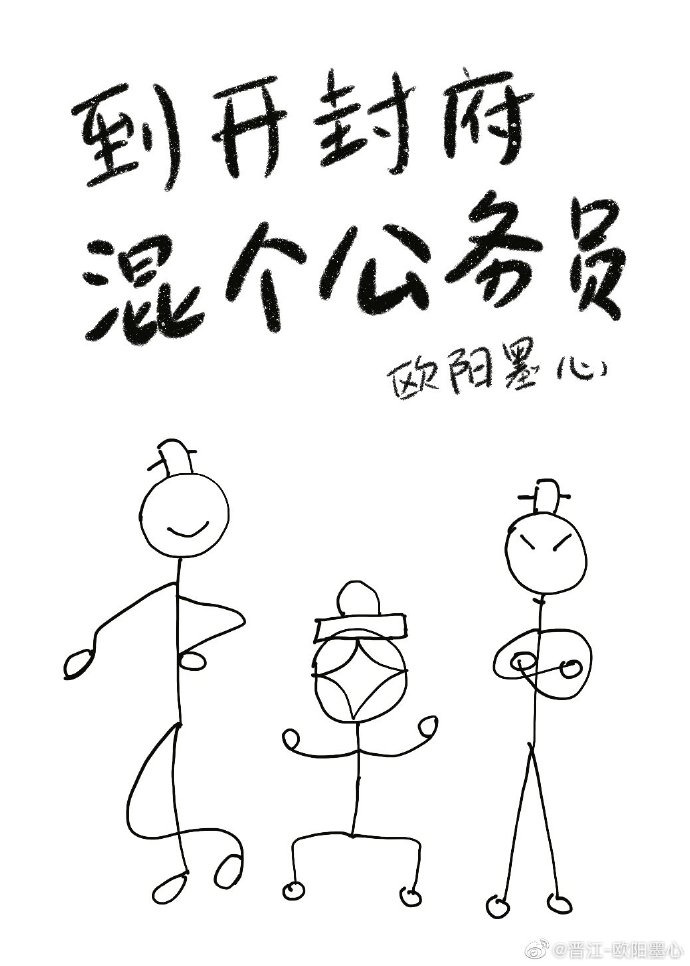 到开封府
混个公务员
欧阳墨心
@晋江-欧阳墨心